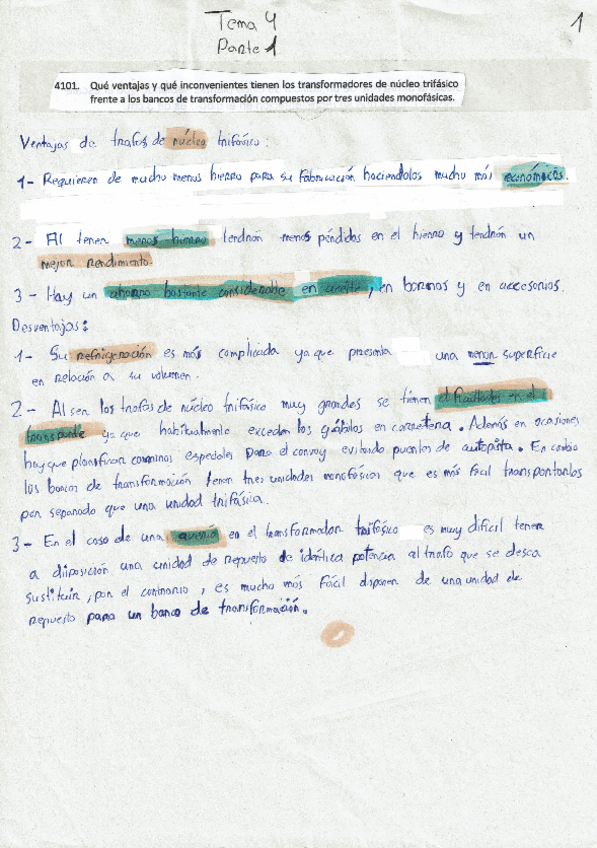 Tema 4
Parte 1
1
4101. Qué ventajas y qué inconvenientes tienen los transformadores de núcleo trifásico
frente a los bancos de transformación compuestos por tres unidades monofásicas.
Ventajas de trafos de núcleo trifásico:
1- Requieren de mucho menos hierro para su fabricación haciendolos mucho más económicos.
2- Al tener menos hierro tendrán menos pérdidas en el hierro y tendrán un
mejor rendimiento.
3- Hay un ahorro bastante considerable en aceite, en bornas y en accesorios.
Desventajas:
1- Su refrigeración es más complicada ya que presenta una menor superficie
en relación a su volumen.
2- Al ser los trafos de núcleo trifásico muy grandes se tienen dificultades en el
transporte ya que habitualmente exceden los gálibos en carretera. Además en ocasiones
hay que planificar caminos especiales para el convoy evitando puentes de autopista. En cambio
los bancos de transformación tienen tres unidades monofásicas que es más fácil transportarlas
por separado que una unidad trifásica.
3- En el caso de una avería en el transformador trifásico es muy difícil tener
a diiposición una unidad de repuesto de idéntica potencia al trafo que se desea
sustituir, por el contrario, es mucho más fácil disponer de una unidad de
repuesto para un banco de transformación.